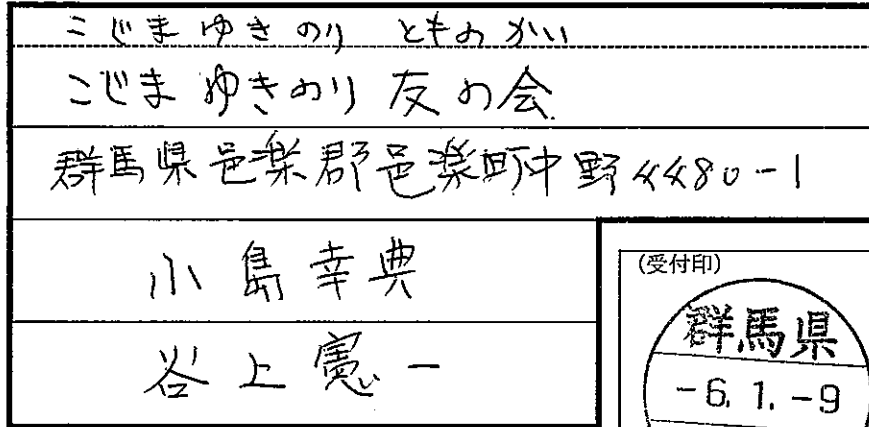 こじまゆきのり ともの かい
こじまゆきのり 友の会
群馬県邑楽郡邑楽町中野4480-1
小島幸典
谷上憲一
(受付印)
群馬県
-6.1.-9